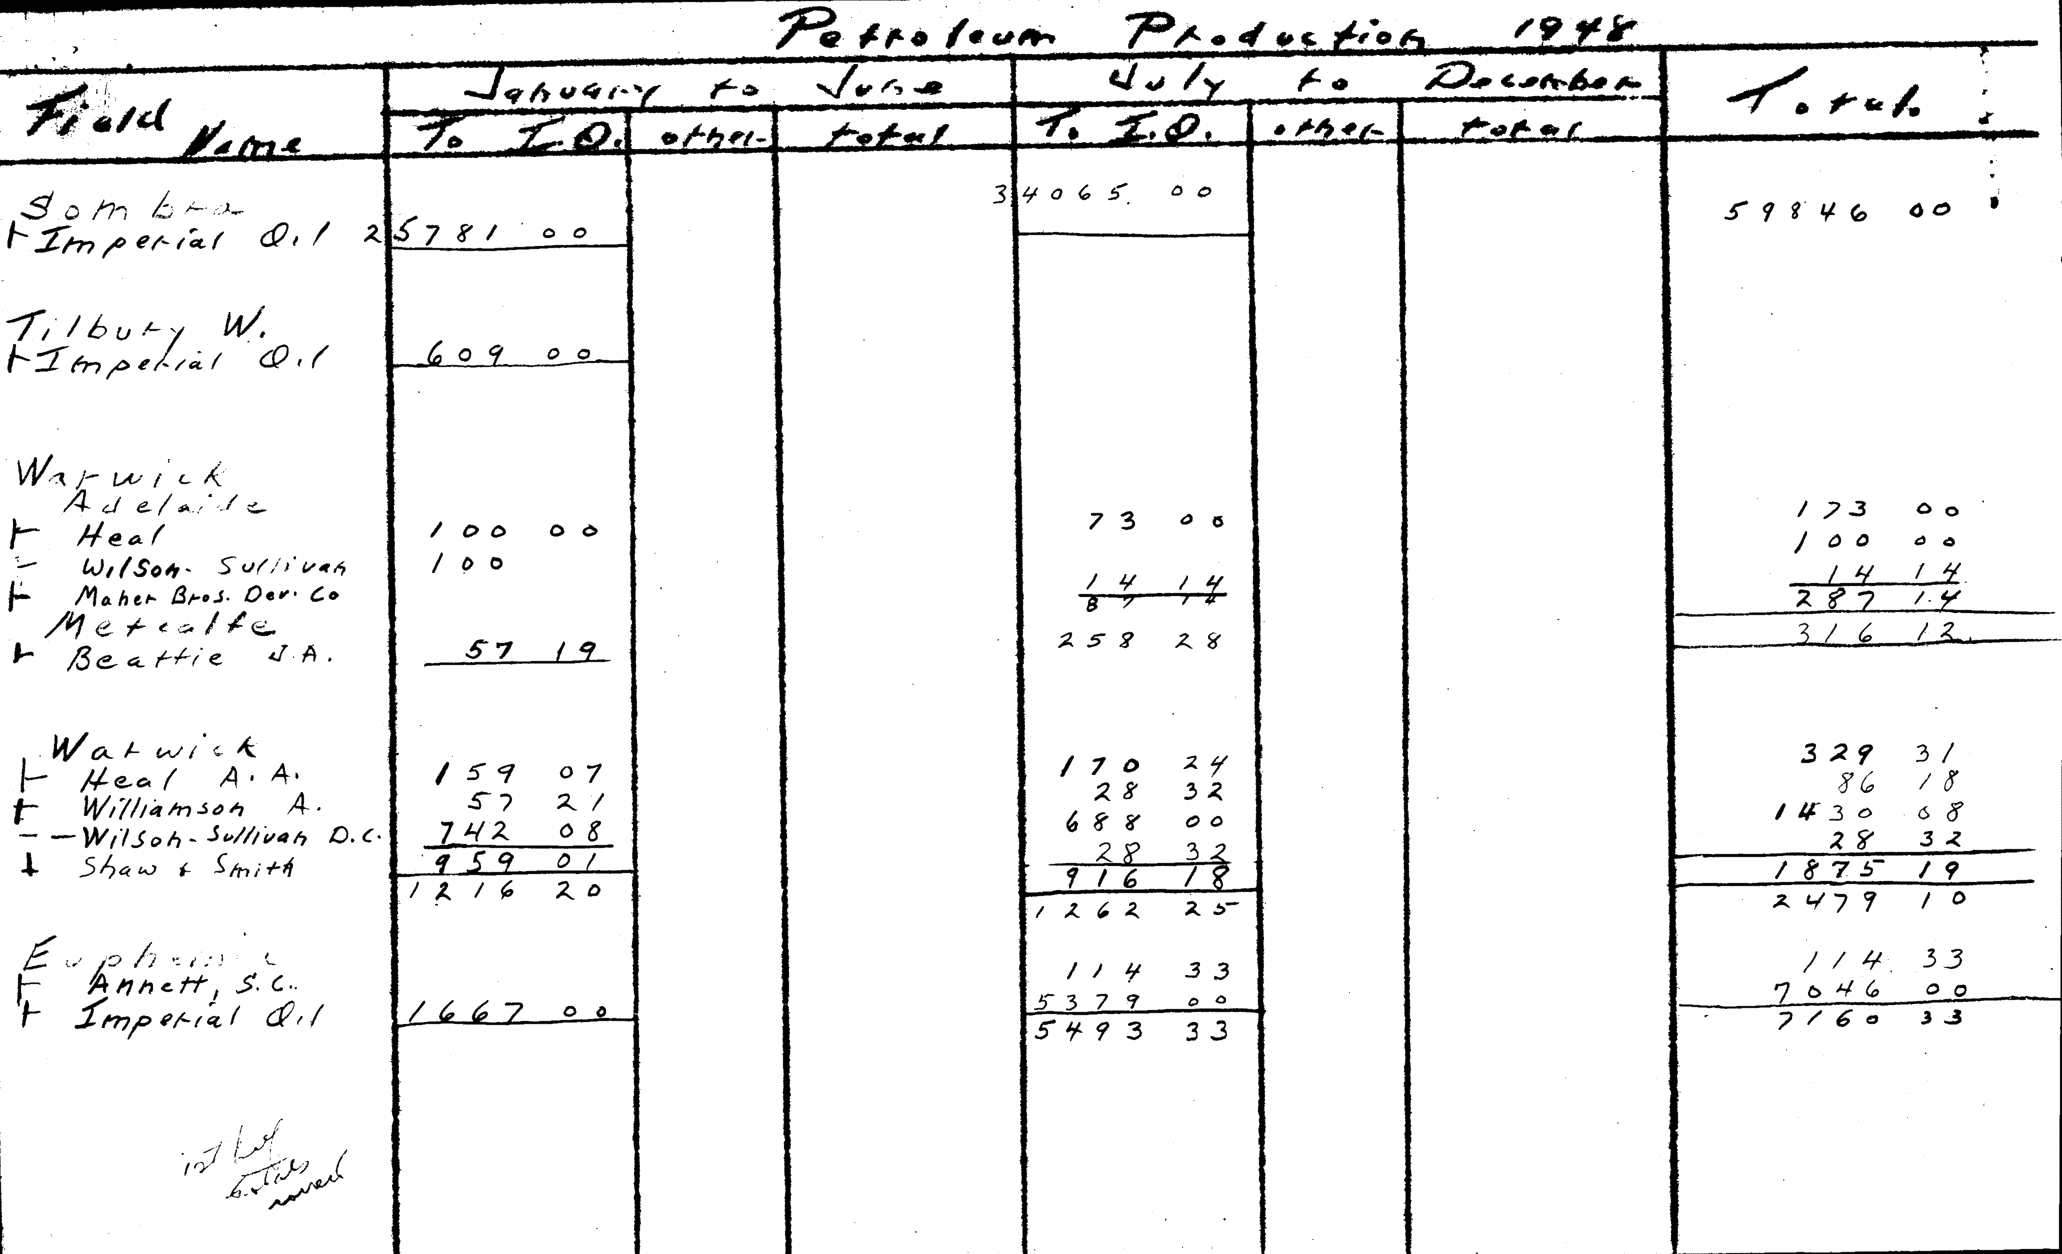 Petroleum Production 1948
Field Name January to June July to December Total
To I.O. other total To I.O. other total
Sombra 34065 00
Imperial Oil 25781 00 59846 00
Tilbury W.
Imperial Oil 609 00
Warwick
Adelaide
Heal 100 00 73 00 173 00
Wilson-Sullivan 100 100 00
Maher Bros. Dev. Co 14 14 14 14
87 14 287 14
Metcalfe
Beattie J.A. 57 19 258 28 316 12
Warwick
Heal A.A. 159 07 170 24 329 31
Williamson A. 57 21 28 32 86 18
Wilson-Sullivan D.C. 742 08 688 00 1430 08
Shaw & Smith 28 32 28 32
959 01 916 18 1875 19
1216 20 1262 25 2479 10
Euphemia
Annett, S.C. 114 33 114 33
Imperial Oil 1667 00 5379 00 7046 00
5493 33 7160 33
1st half
totals